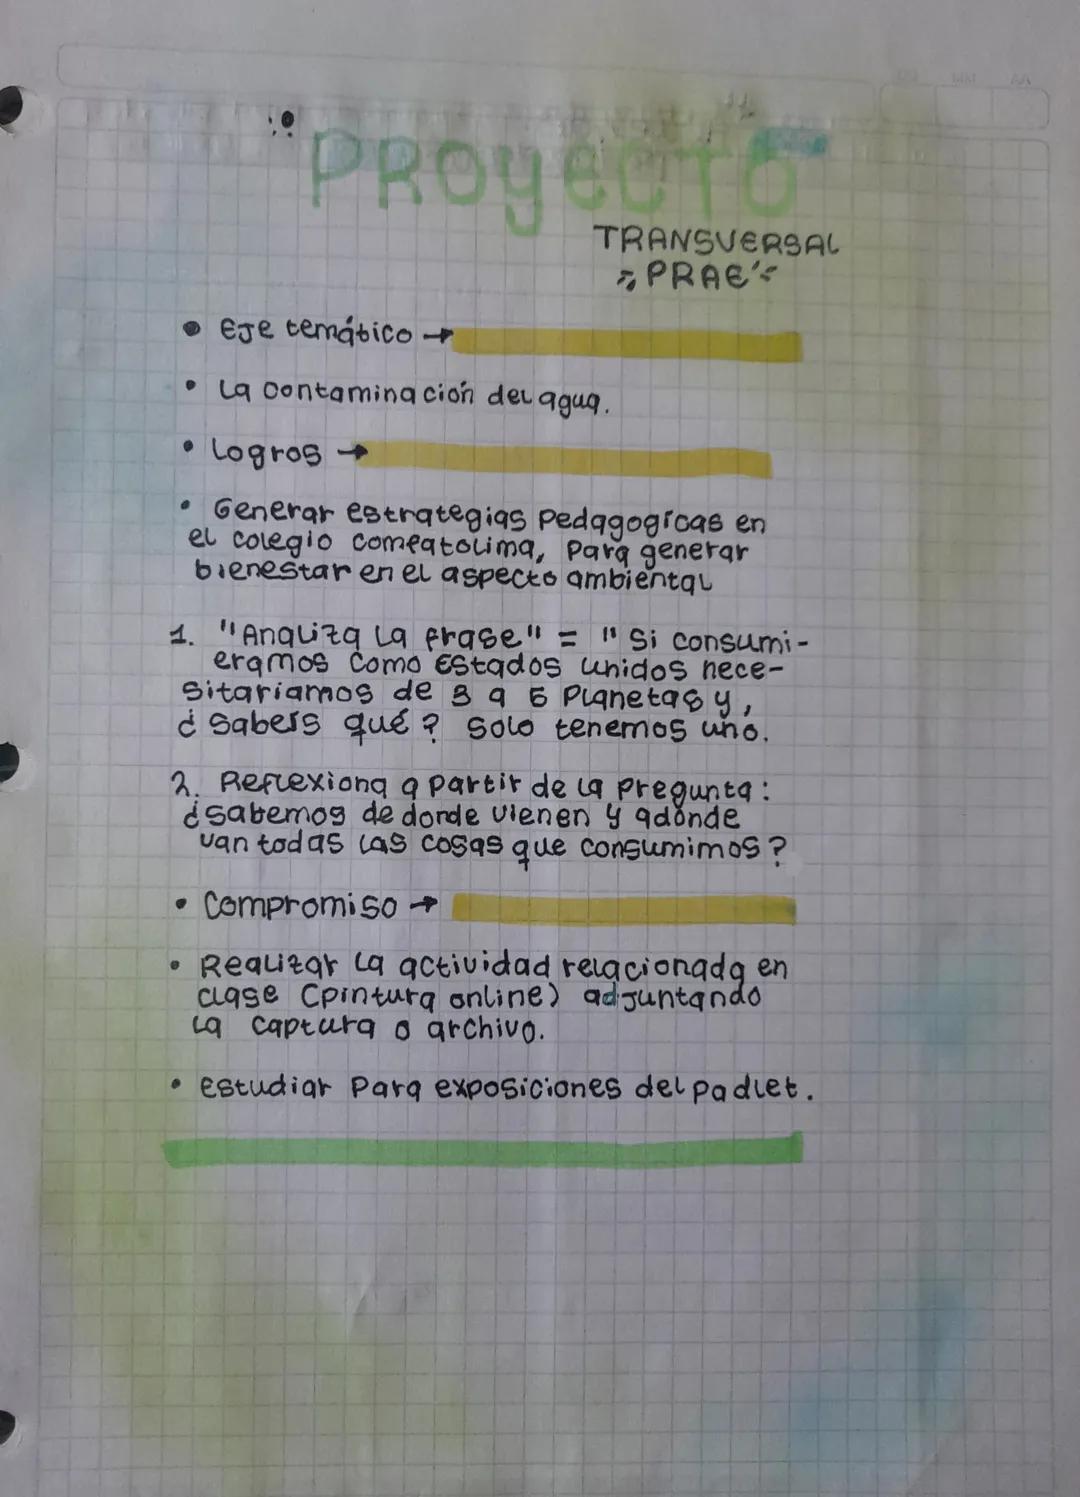 PROYECTO
TRANSVERSAL
PRAE
• Eje temático →
• La contaminación del agua.
• Logros →
• Generar estrategias Pedagogicas en
el colegio comfatolima, para generar
bienestar en el aspecto ambiental
1. "Analiza la frase" = "Si consumi-
eramos como Estados unidos nece-
sitaríamos de 3 a 5 Planetas y,
¿Sabeis qué? Solo tenemos uno.
2. Reflexiona a partir de la Pregunta:
¿sabemos de donde vienen y adonde
van todas las cosas que consumimos?
• Compromiso →
• Realizar la actividad relacionada en
clase (pintura online) adjuntando
la captura o archivo.
• estudiar Para exposiciones del padlet.